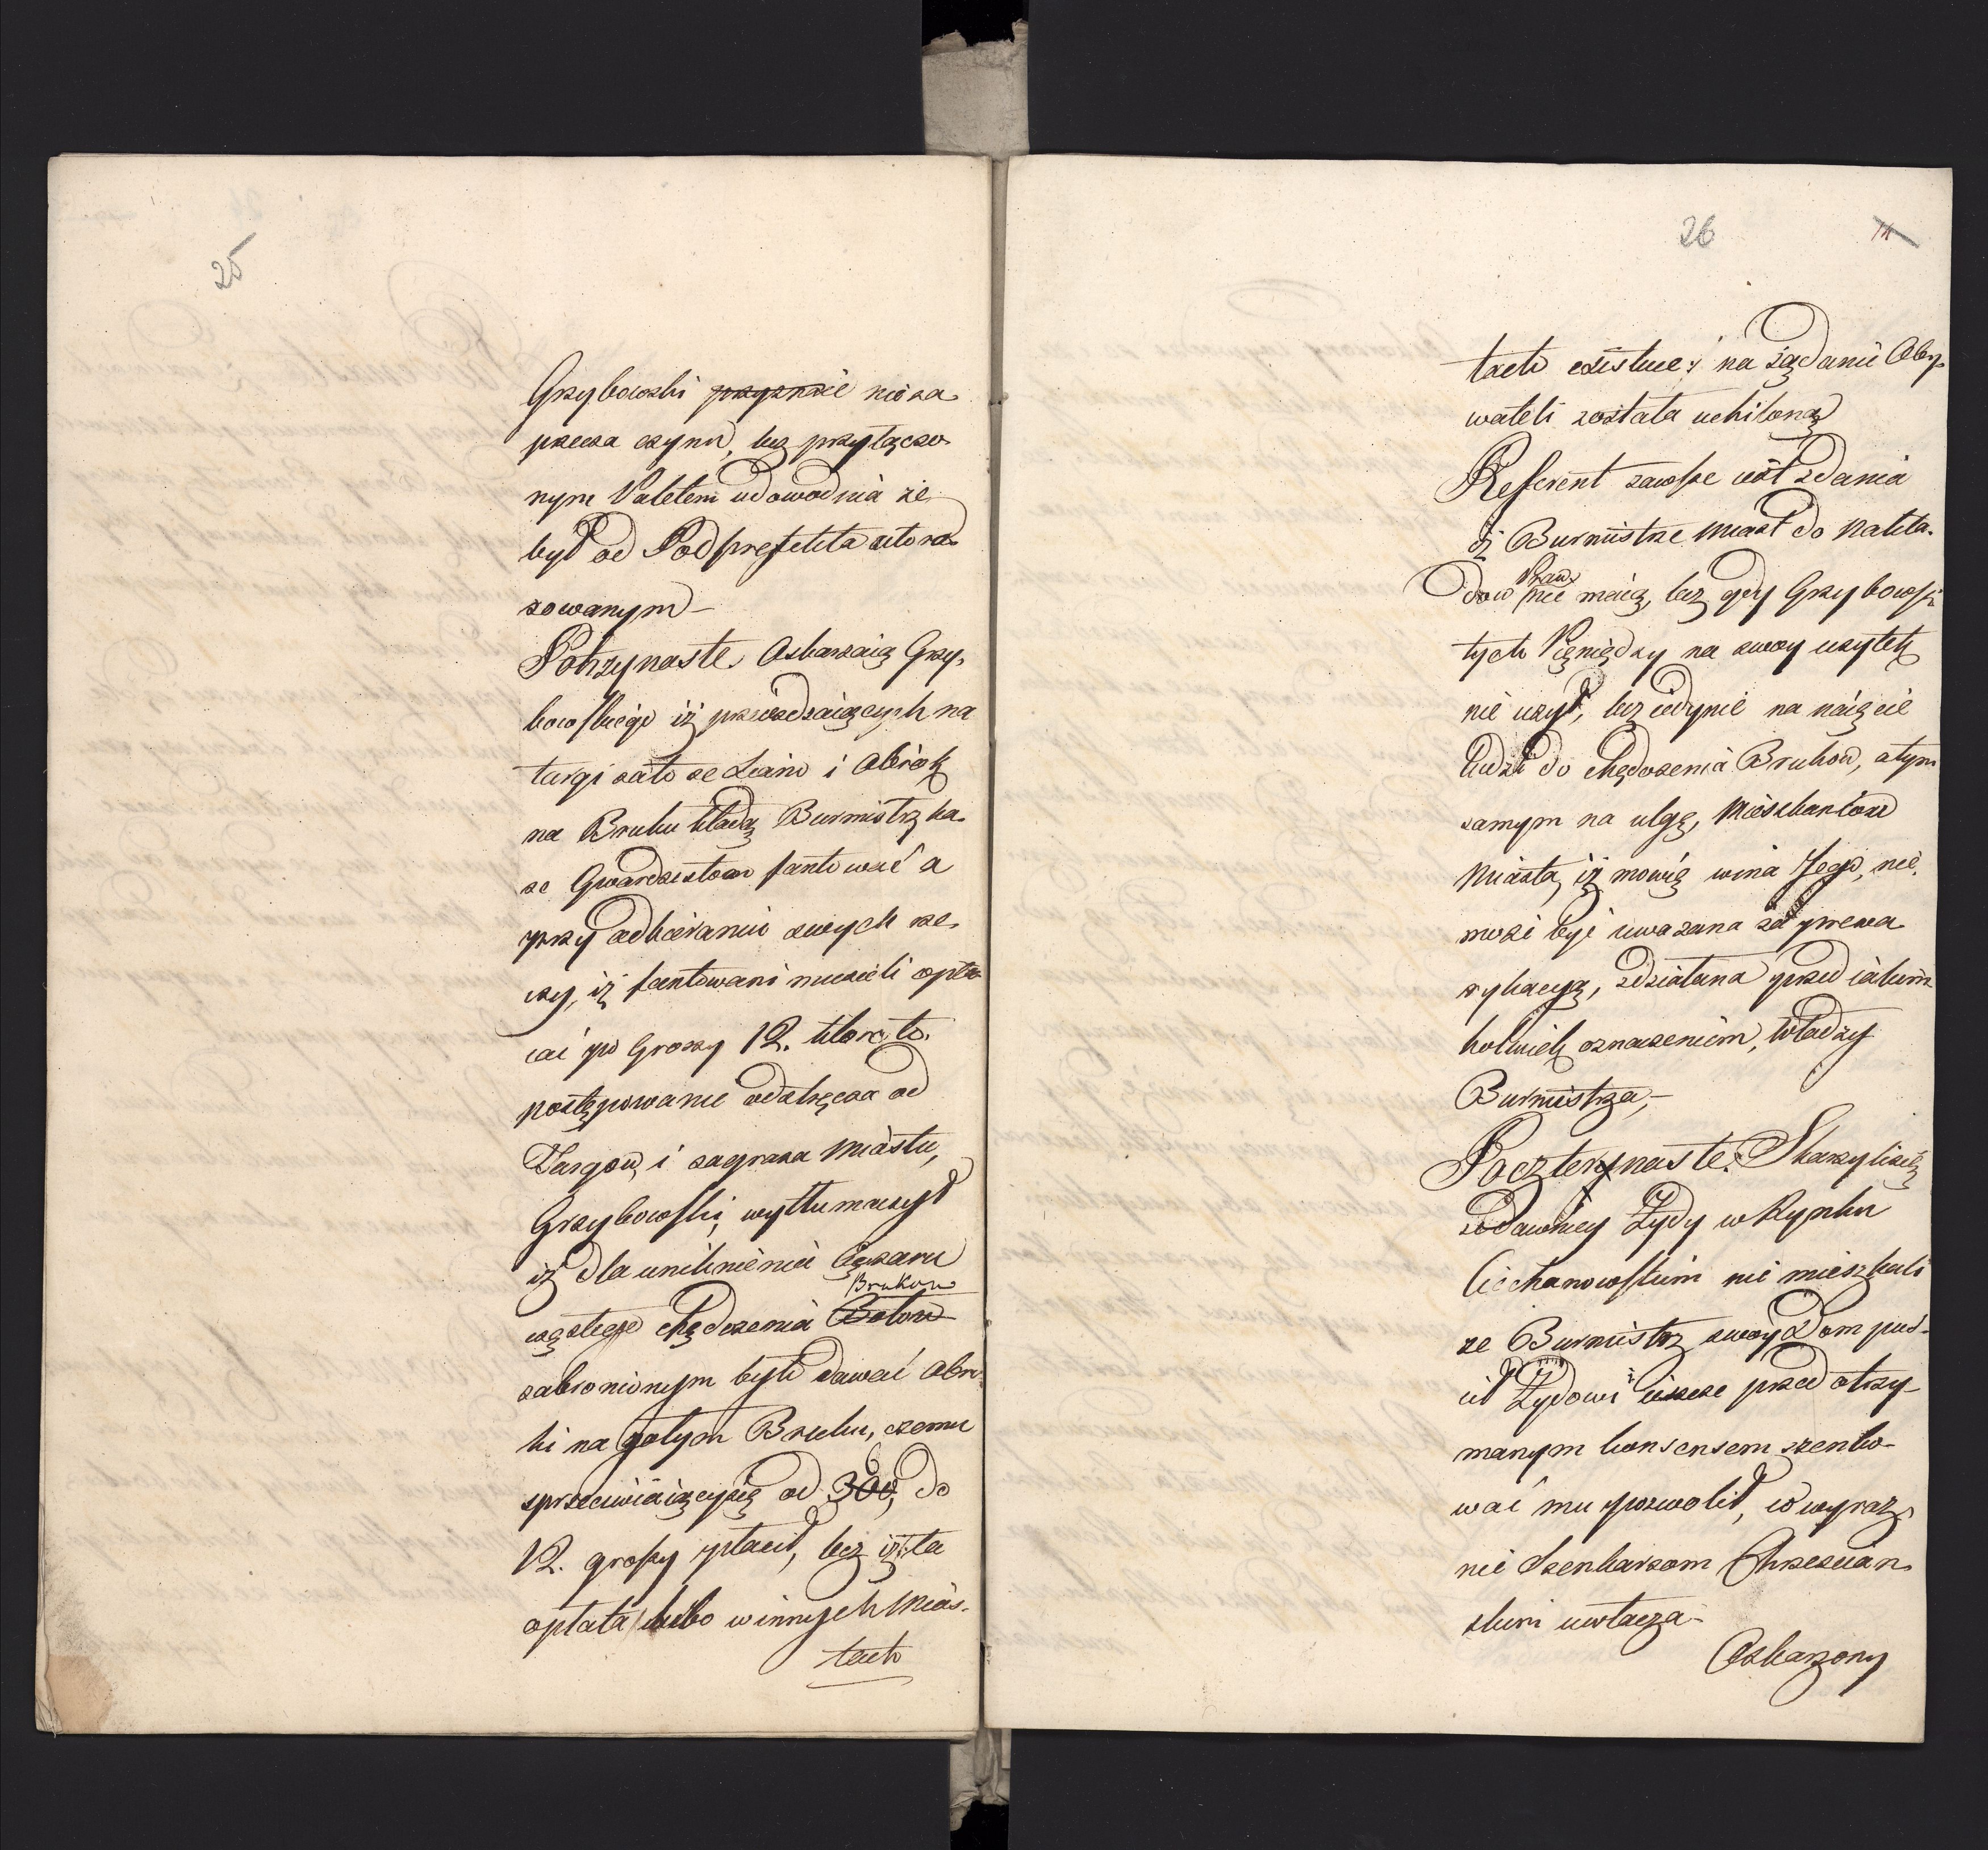 25
Grzybowski przyznaie nieza
przecza czynu, lecz przyłączo
nym Paletem udowodnia że
był od Podprefekta autory
zowanym –
Potrzynaste. Oskarzaią Grzy,
bowskiego iż przeiezdzaiących na
targi iak to ze Sianem i Obrok
na Bruku kładą Burmistrz ka
że Gwardzistom fantować a
przy odbieraniu swych rze,
czy, iż fantowani musieli opła
cać po Groszy 12. które to.
postępowanie odstręcza od
Targow, i zagraża Miastu,
Grzybowski, wytłumaczył
iż dla uniknienia Ciężaru
Brukow
częstego chędożenia Botow
zabronionym było dawać Obro
ki na gołym Bruku, czemu
sprzeciwiaiącysię od 36, do
12. groszy płacił, lecz iż ta
opłata lubo w innych Mias-
tach
26
14
tach existuie; na żądanie Oby
wateli została uchiloną
Referent zawsze iest zdania
iż Burmistrze Miast do nakła.
Praw
dow nie maią, lecz gdy Grzybowski
tych Pieniędzy na swoy użytek
nie użył, lecz iedynie na naięcie
Ludzi do chędożenia Brukow, atym
samym na ulgę, Mieszkańcow
Miasta, iż mowię wina Jego, nie,
może być uważana za prewa
rykacyą, zdziałana przed iakim
kolwiek oznaczeniem, Władzy
Burmistrza, –
Poczternaste. Skarzyli się
że dawniey Żydy w Rynku
Ciechanowskim nie mieszkali
że Burmistrz swoy Dom puś-
cił Żydowi i ieszcze przed otrzy-
manym konsensem szenko-
wać mu pozwolił, co wyraz,
nie Szenkarzom Chrzescian
skim uwłacza –
Oskarzony